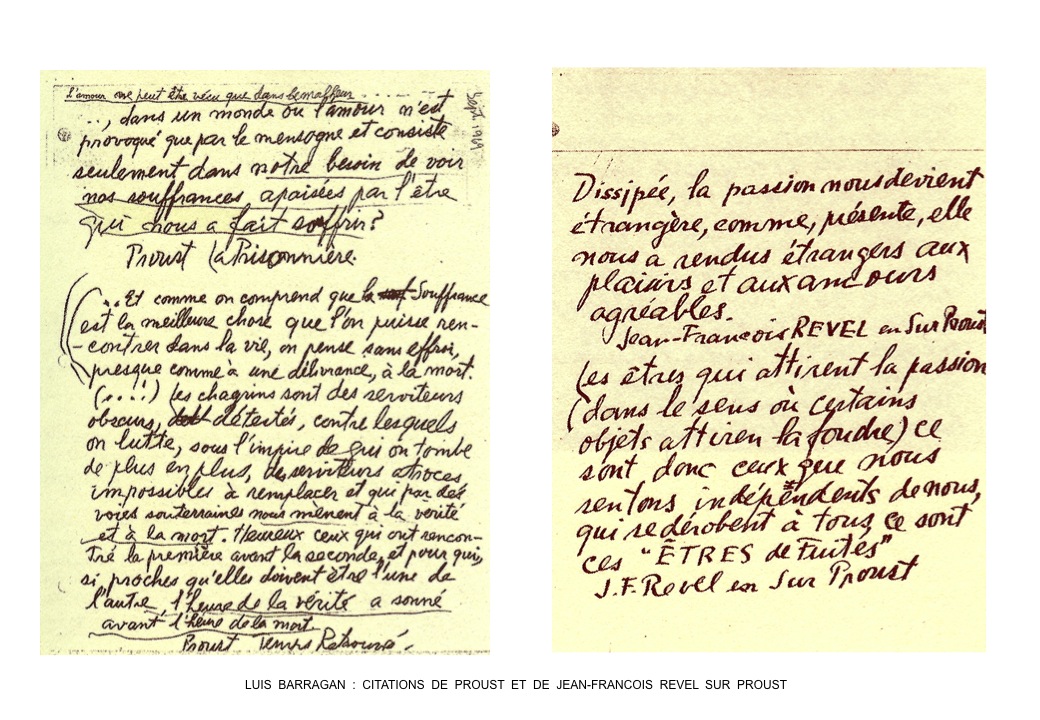 L'amour ne peut être vécu que dans le malheur . . . . - - -
. . , dans un monde où l'amour n'est
provoqué que par le mensonge et consiste
seulement dans notre besoin de voir
nos souffrances apaisées par l'être
qui nous a fait souffrir?
Proust La Prisonnière.
(... Et comme on comprend que la Souffrance
est la meilleure chose que l'on puisse ren-
-contrer dans la vie, on pense sans effroi,
presque comme à une délivrance, à la mort.
(...!) les chagrins sont des serviteurs
obscurs, détestés, contre lesquels
on lutte, sous l'empire de qui on tombe
de plus en plus, des serviteurs atroces
impossibles à remplacer et qui par des
voies souterraines nous mènent à la vérité
et à la mort. Heureux ceux qui ont rencon-
tré la première avant la seconde, et pour qui,
si proches qu'elles doivent être l'une de
l'autre, l'heure de la vérité a sonné
avant l'heure de la mort.
Proust Temps Retrouvé.-
Sept.
Dissipée, la passion nous devient
étrangère, comme, présente, elle
nous a rendus étrangers aux
plaisirs et aux amours
agréables.
Jean-François REVEL en Sur Proust
Les êtres qui attirent la passion
(dans le sens où certains
objets attiren la foudre) ce
sont donc ceux que nous
sentons indépendents de nous,
qui se dérobent à tous, ce sont
ces "ÊTRES de Fuites"
J.F. Revel en Sur Proust
LUIS BARRAGAN : CITATIONS DE PROUST ET DE JEAN-FRANCOIS REVEL SUR PROUST